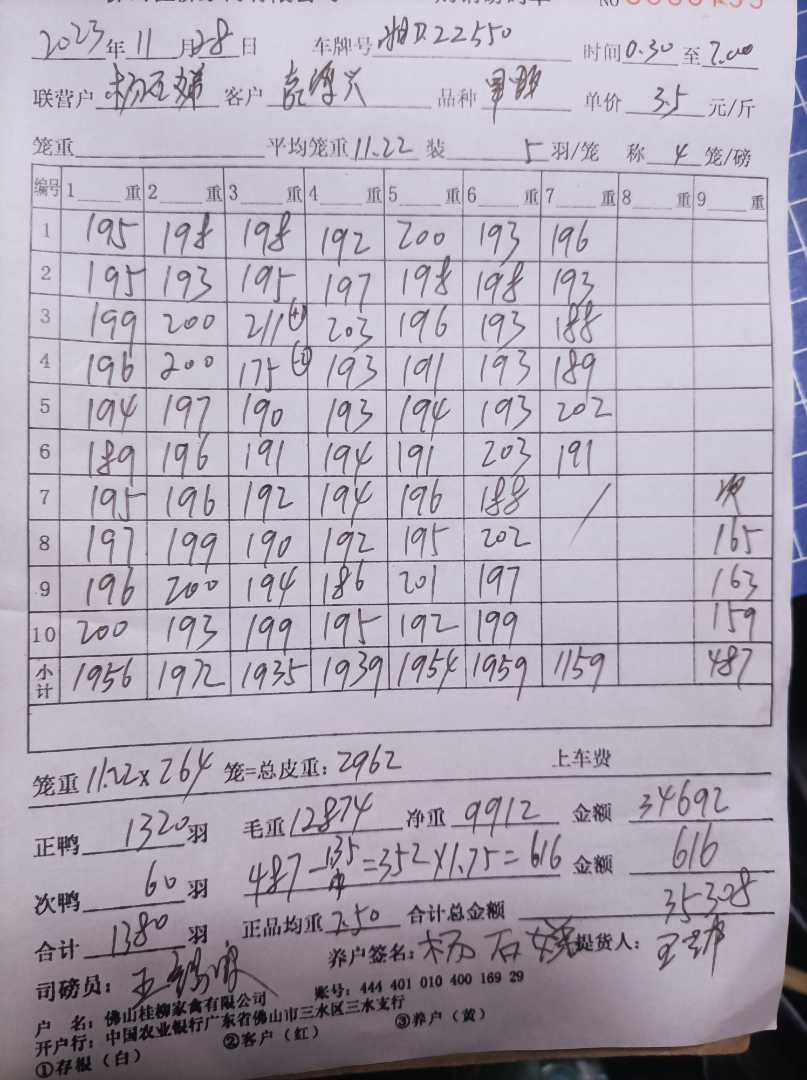 2023年11月28日 车牌号 湘D.22550 时间0.30至7.00
联营户 客户 品种 单价 3.5 元/斤
笼重 平均笼重11.22 装 5 羽/笼 称 4 笼/磅
编号 1 重 2 重 3 重 4 重 5 重 6 重 7 重 8 重 9 重
1 195 198 198 192 200 193 196
2 195 193 195 197 198 198 193
3 199 200 211(+) 203 196 193 188
4 196 200 175(-) 193 191 193 189
5 194 197 190 193 194 193 202
6 189 196 191 194 191 203 191
7 195 196 192 194 196 188 / 次
8 197 199 190 192 195 202 165
9 196 200 194 186 201 197 163
10 200 193 199 195 192 199 159
小计 1956 1972 1935 1939 1954 1959 1159 487
笼重 11.22×264 笼=总皮重：2962 上车费
正鸭 1320 羽 毛重 12874 净重 9912 金额 34692
次鸭 60 羽 487-135=352×1.75=616 金额 616
合计 1380 羽 正品均重 7.50 合计总金额 35308
司磅员： 养户签名： 提货人：
户 名：佛山桂柳家禽有限公司 账号：444 401 010 400 169 29
开户行：中国农业银行广东省佛山市三水区三水支行
①存根（白） ②客户（红） ③养户（黄）